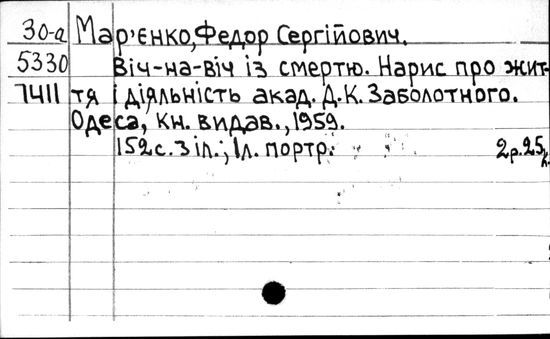 30-а Мар'єнко, Федор Сергійович.
5330 Віч-на-віч із смертю. Нарис про жит-
7411 тя і діяльність акад. Д.К. Заболотного.
Одеса, кн. видав., 1959.
152 с. З іл.; 1 л. портр. 2р.25к.